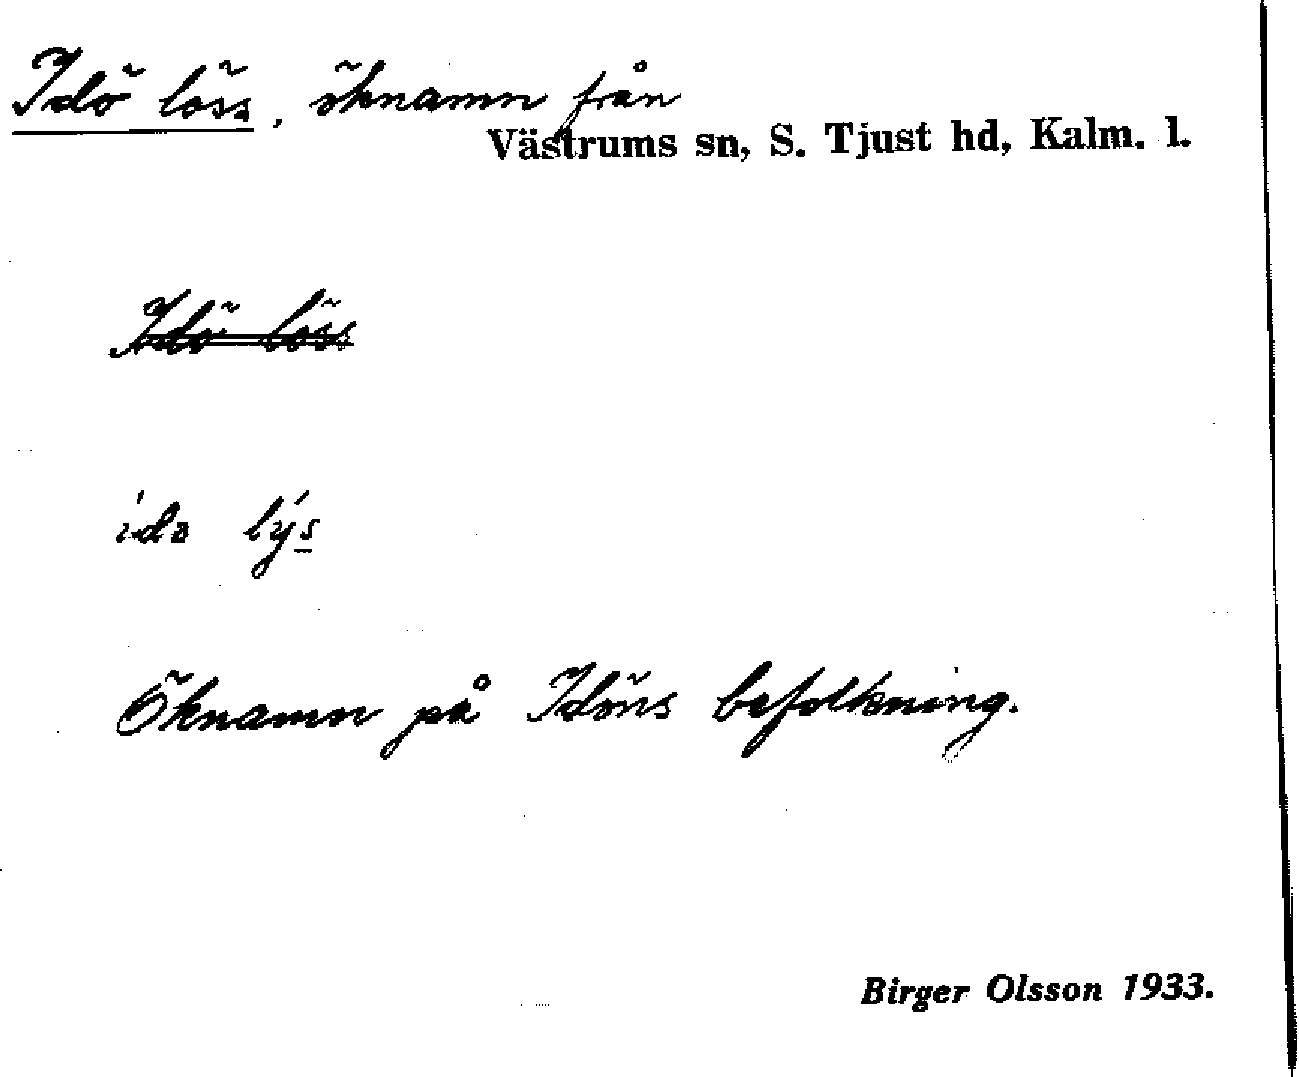 Idö löss, öknamn från
Västrums sn, S. Tjust hd, Kalm. l.
Idö löss
ídɷ lýs
Öknamn på Idöns befolkning.
Birger Olsson 1933.